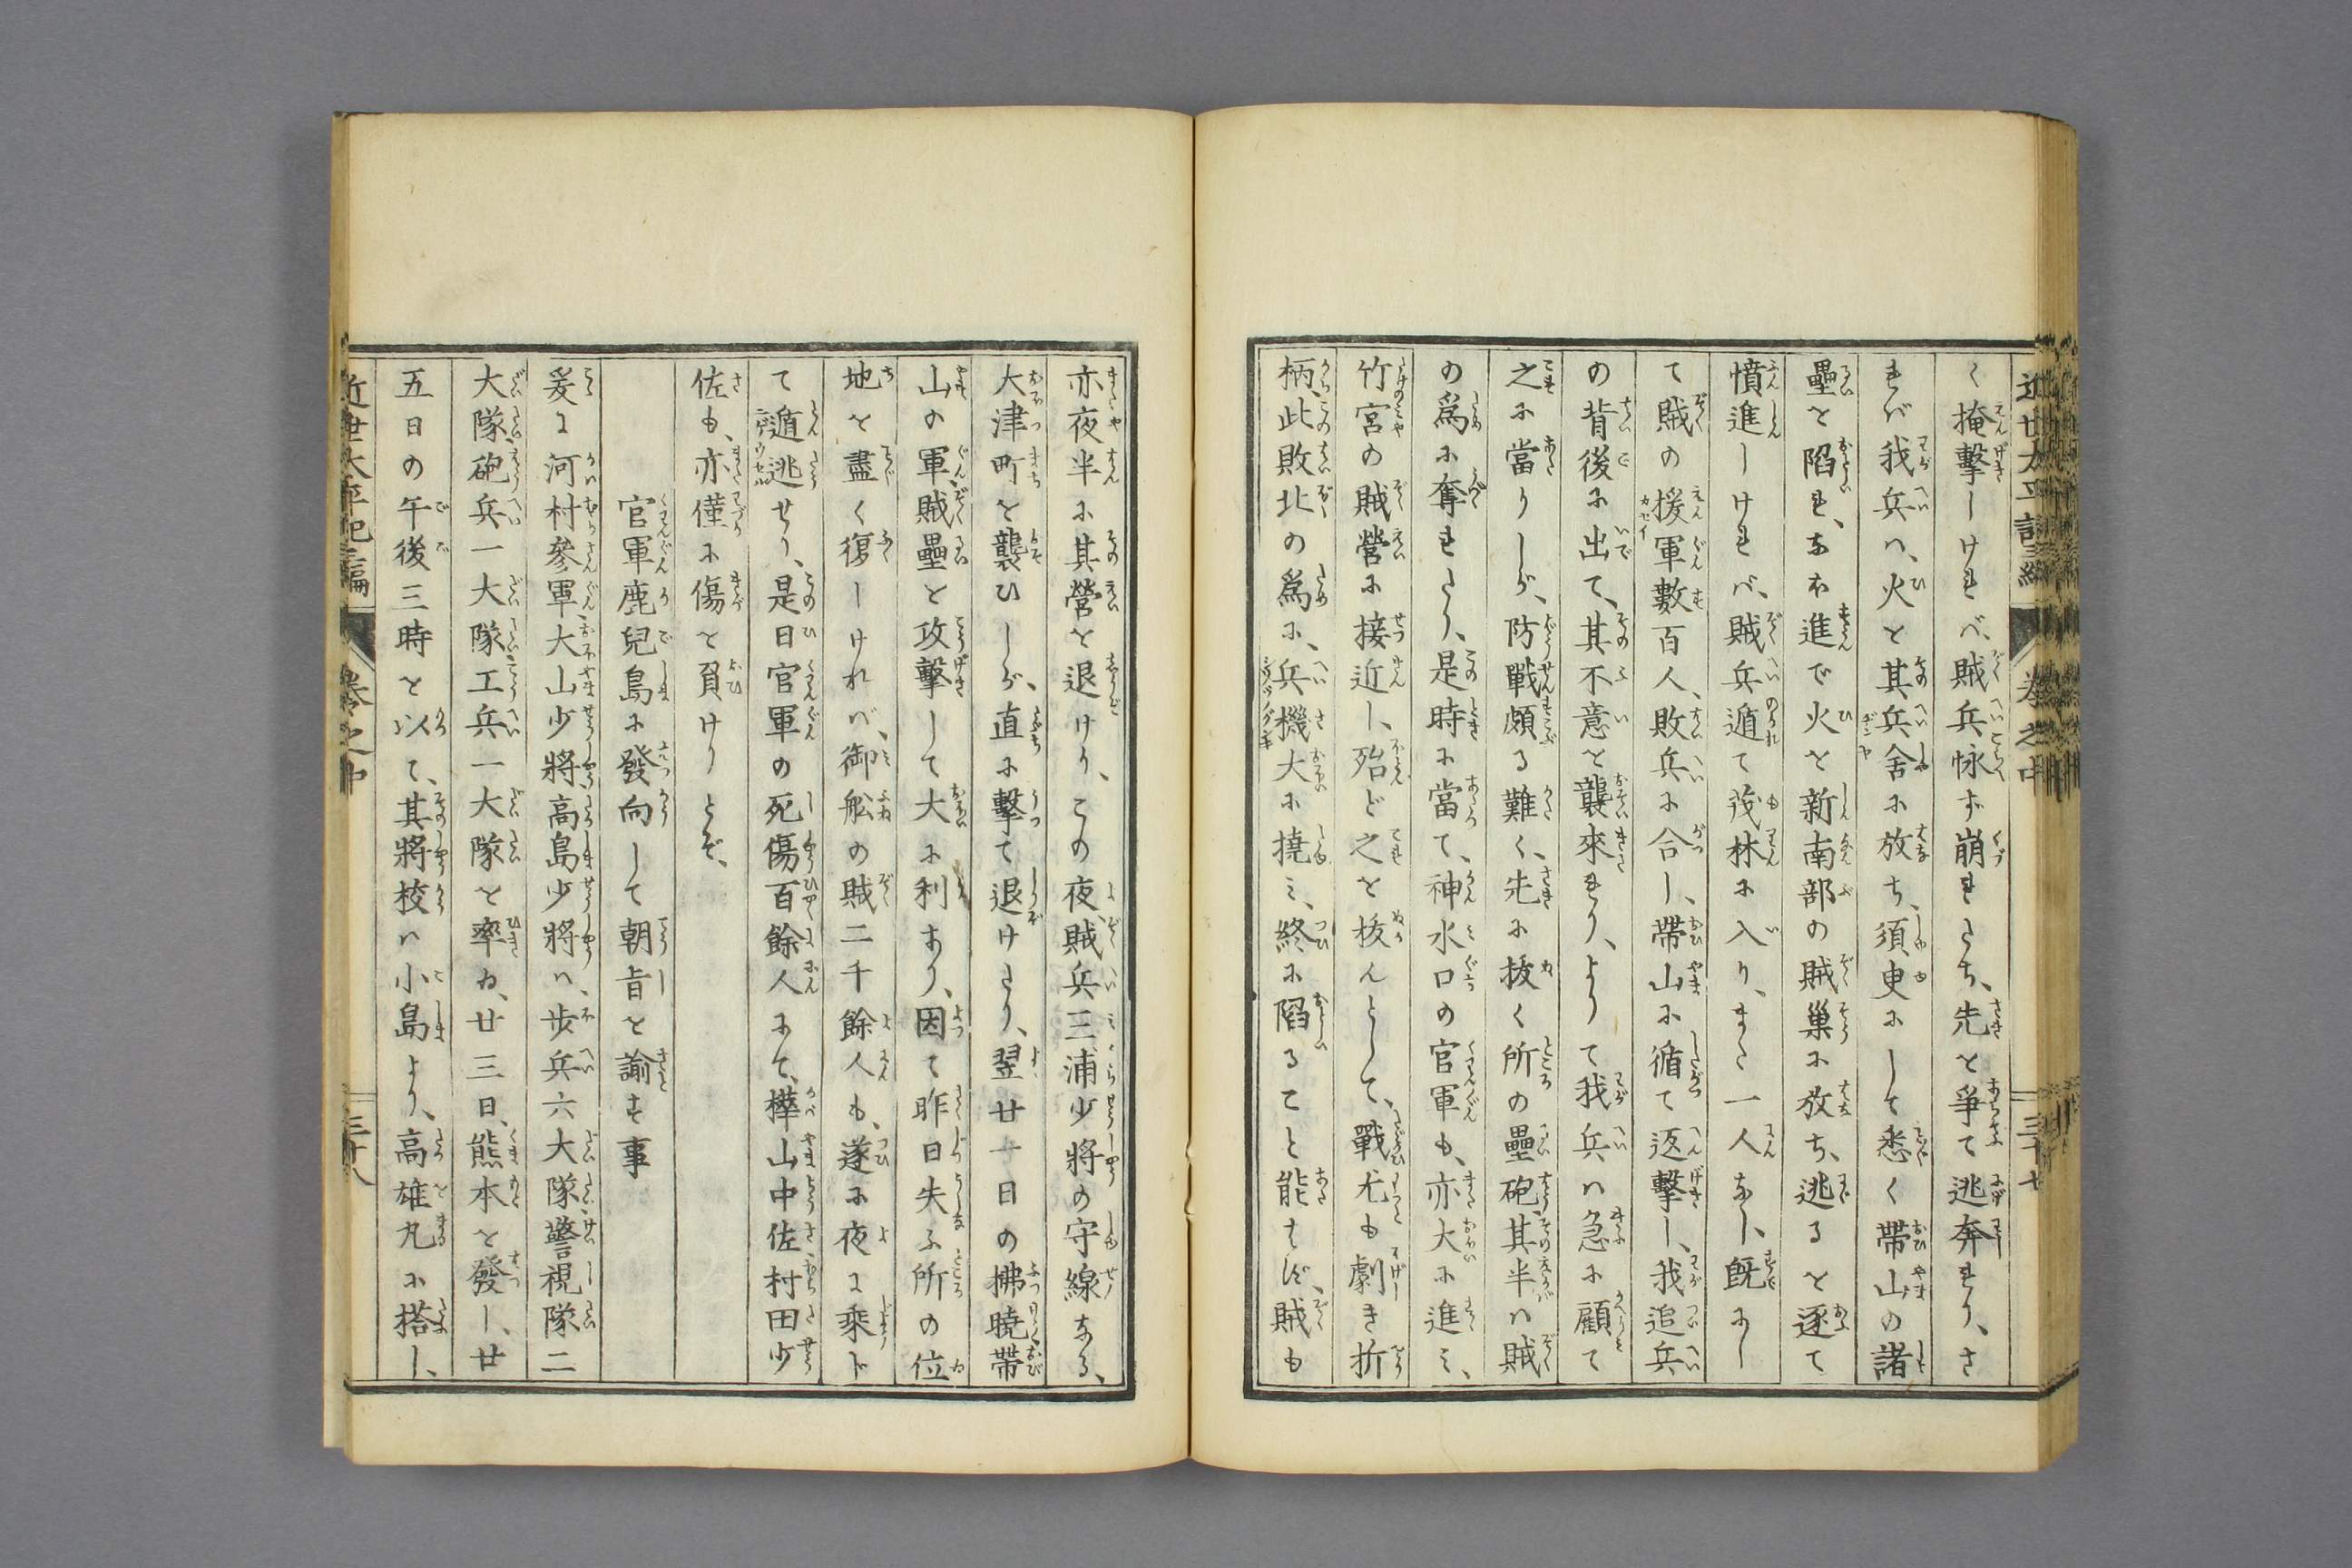 く掩擊しければ、賊兵怺ず崩れたち、先を爭て逃奔れり、さ
れば我兵ハ、火を其兵舍に放ち、須臾にして悉く帶山の諸
壘を陷れ、なお進で火を新南部の賊巢に放ち、逃るを逐て
憤進しければ、賊兵遁て茂林に入り、また一人なし、既にし
て賊の援軍數百人、敗兵に合し、帶山に循て返擊し、我追兵
の背後に出て、其不意を襲來れり、よりて我兵ハ急に顧て
之に當りしが、防戰頗る難く、先に拔く所の壘砲、其半ハ賊
の爲に奪れたり、是時に當て、神水口の官軍も、亦大に進ミ、
竹宮の賊營に接近し、殆ど之を拔んとして、戰尤も劇き折
柄、此敗北の爲に、兵機大に撓ミ、終に陷ること能はず、賊も
亦夜半に其營を退けり、この夜、賊兵三浦少將の守線なる、
大津町を襲ひしが、直に擊て退けたり、翌廿一日の拂曉、帶
山の軍、賊壘を攻擊して大に利あり、因て昨日失ふ所の位
地を盡く復しければ、御舩の賊二千餘人も、遂に夜に乘ド
て遁逃せり、是日官軍の死傷百餘人にて、樺山中佐村田少
佐も、亦僅に傷を負けりとぞ、
官軍鹿兒島に發向して朝旨を諭す事
爰に河村參軍、大山少將高島少將ハ、歩兵六大隊、警視隊二
大隊、砲兵一大隊、工兵一大隊を率ゐ、廿三日、熊本を發し、廿
五日の午後三時を以て、其將校ハ小島より、高雄丸に搭し、
近世太平記三編 卷之中 三十八